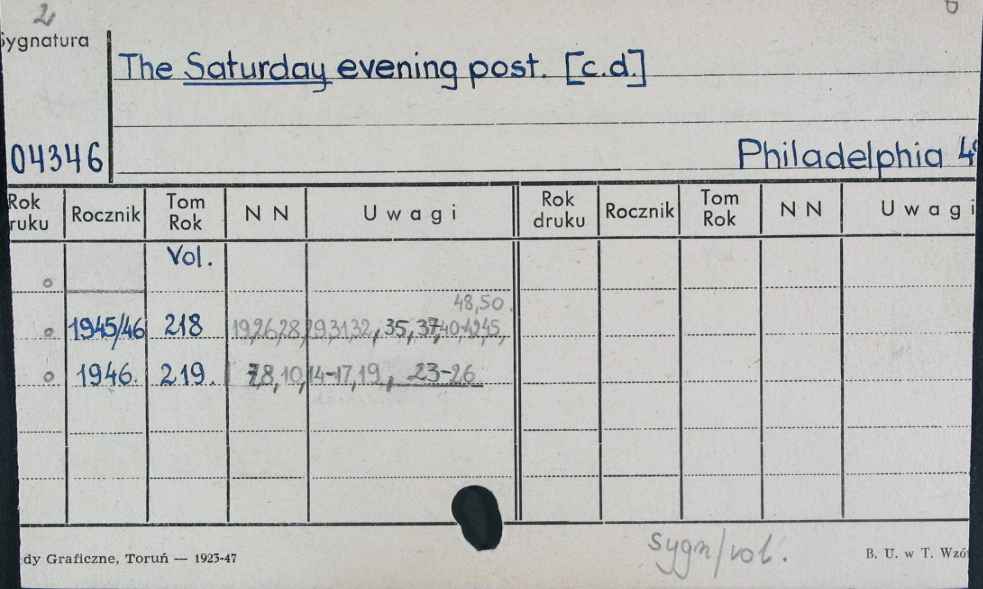 2
Sygnatura
The Saturday evening post. [c.d.]
04346
Philadelphia 4°
Rok druku Rocznik Tom Rok N N Uwagi Rok druku Rocznik Tom Rok N N Uwagi
Vol.
48,50.
1945/46 218 19,26,28,29,31,32, 35, 37, 40-42,45,
1946. 219. 7,8,10,14-17,19, 23-26
sygn/vol.
dy Graficzne, Toruń — 1923-47 B. U. w T. Wzó